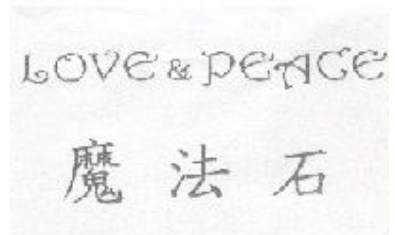 LOVE & PEACE
魔法石